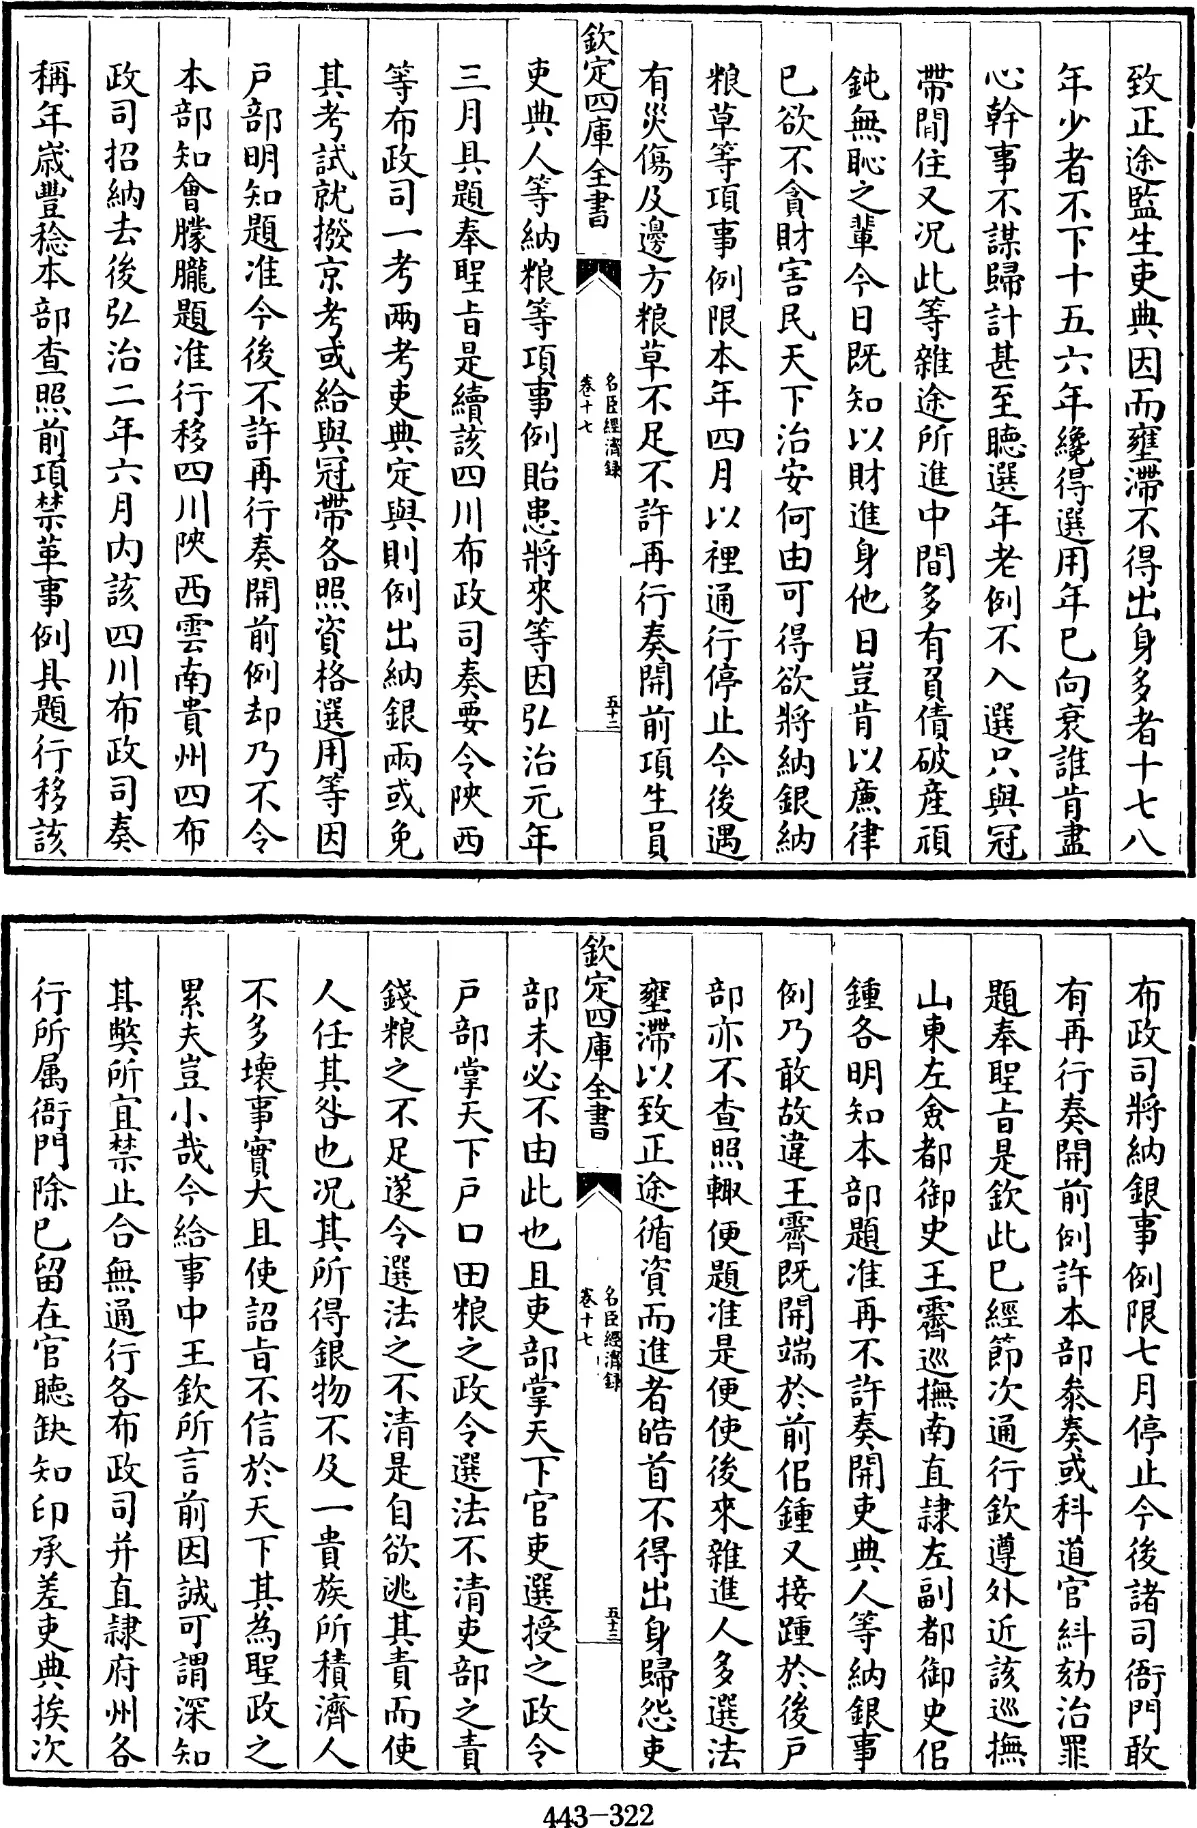 致正途監生吏典因而壅滯不得出身多者十七八
年少者不下十五六年纔得選用年已向衰誰肯盡
心幹事不謀歸計甚至聽選年老例不入選只與冠
帶閒住又况此等雜途所進中間多有負債破產頑
鈍無恥之輩今日既知以財進身他日豈肯以廉律
已欲不貪財害民天下治安何由可得欲將納銀納
粮草等項事例限本年四月以裡通行停止今後遇
有災傷及邊方粮草不足不許再行奏開前項生員
欽定四庫全書
名臣經濟録
卷十七
五十二
吏典人等納粮等項事例貽患將來等因弘治元年
三月具題奉聖旨是續該四川布政司奏要令陜西
等布政司一考兩考吏典定與則例出納銀兩或免
其考試就撥京考或給與冠帶各照資格選用等因
戸部明知題准今後不許再行奏開前例却乃不令
本部知會朦朧題准行移四川陜西雲南貴州四布
政司招納去後弘治二年六月内該四川布政司奏
稱年嵗豐稔本部查照前項禁革事例具題行移該
布政司將納銀事例限七月停止今後諸司衙門敢
有再行奏開前例許本部叅奏或科道官糾劾治罪
題奉聖旨是欽此已經節次通行欽遵外近該巡撫
山東左僉都御史王霽巡撫南直隷左副都御史侣
鍾各明知本部題准再不許奏開吏典人等納銀事
例乃敢故違王霽既開端於前侣鍾又接踵於後戸
部亦不查照輙便題准是便使後來雜進人多選法
壅滯以致正途循資而進者皓首不得出身歸怨吏
欽定四庫全書
名臣經濟録
卷十七
五十三
部未必不由此也且吏部掌天下官吏選授之政令
戸部掌天下戸口田粮之政令選法不清吏部之責
錢粮之不足遂令選法之不清是自欲逃其責而使
人任其咎也况其所得銀物不及一貴族所積濟人
不多壞事實大且使詔旨不信於天下其為聖政之
累夫豈小哉今給事中王欽所言前因誠可謂深知
其弊所宜禁止合無通行各布政司并直隷府州各
行所属衙門除已留在官聽缺知印承差吏典挨次
443-322